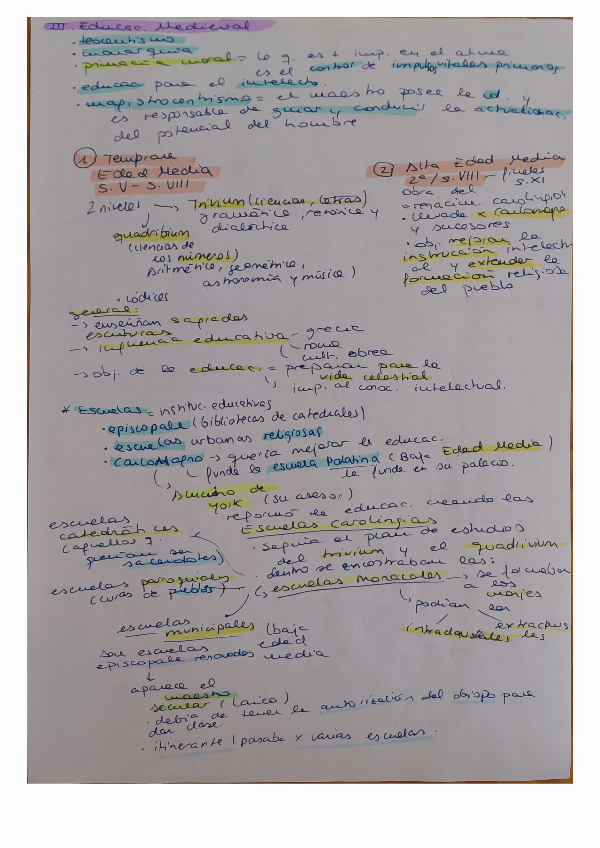 III. Educac. Medieval
· teocentrismo
· monarquia
· primacia moral = lo q. es + imp. en el alma
es el control de impulsos vitales primarios
· educac para el intelecto.
· magistrocentrismo = el maestro posee la vd. y
es responsable de guiar y conducir la actualizac.
del potencial del hombre
① Temprana
Edad Media
S. V - S. VIII
2 niveles → Trivium (ciencias, letras)
gramática, retórica y
dialéctica
quadribium
(ciencias de
los números)
Aritmética, geométrica,
astronomía y música)
· códices
② Alta Edad Media
2ª/S. VIII - finales
S. XI
obra del
renacim. carolingio
· llevada x Carlomagno
y sucesores
· obj. mejorar la
instrucción intelect-
al y extender la
formación religiosa
del pueblo
general:
→ enseñan sagradas
escrituras
→ influencia educativa - grecia
- roma
cult. obrea
→ obj. de la educac. = preparar para la
vida celestial.
imp. al conoc. intelectual.
* Escuelas = instituc. educativas
· episcopale (bibliotecas de catedrales)
· escuelas urbanas religiosas
· Carlomagno → quería mejorar la educac.
funda la escuela Palatina (Baja Edad Media)
la funda en su palacio.
Alcuino de
York (su asesor)
reformó de educac. creando las
Escuelas Carolingias
· seguía el plan de estudios
del trivium y el quadrivium
· dentro se encontraban las:
escuelas
catedráticas
(aquellos q.
querían ser
sacerdotes)
escuelas paroquiales
(curas de pueblos)
escuelas monacales → se formaban
a los
monjes
podían ser
intradaustrales las extraclaus
escuelas
municipales (baja
edad
media
son escuelas
episcopale renovadas
↓
aparece el
maestro
secular (laico)
· debía de tener la autorización del obispo para
dar clase.
· itinerante (pasaba x varias escuelas.